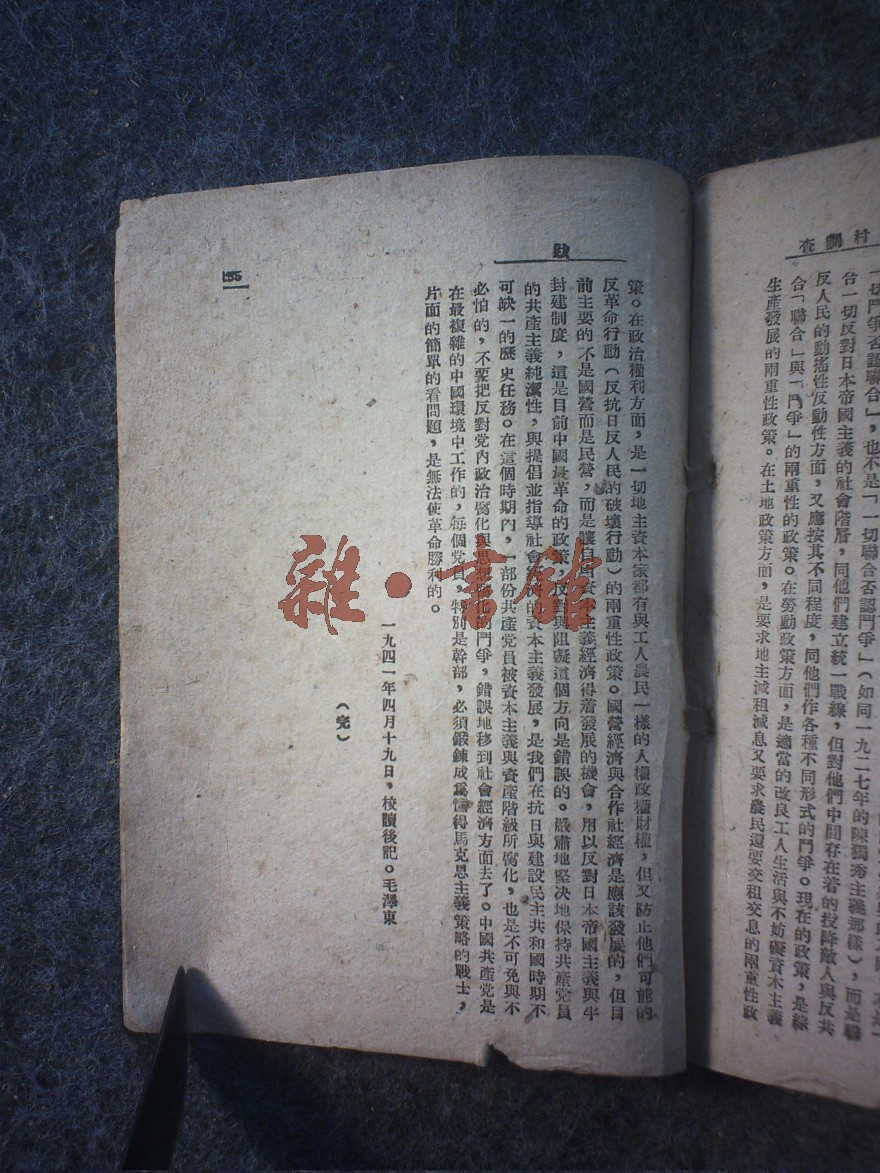 村調查
一切鬥爭否認聯合」，也不是「一切聯合否認鬥爭」（如同一九二七年的陳獨秀主義那樣），而是聯
合一切反對日本帝國主義的社會階層，同他們建立統一戰線，但對他們中間存在着的投降敵人與反共
反人民的動搖性反動性方面，又應按其不同程度，同他們作各種不同形式的鬥爭。現在的政策，是綜
合「聯合」與「鬥爭」的兩重性的政策。在勞動政策方面，是適當的改良工人生活與不妨礙資本主義
生產發展的兩重性政策。在土地政策方面，是要求地主減租減息又要求農民還要交租交息的兩重性政
跋
策。在政治權利方面，是一切地主資本家都有與工人農民一樣的人權政權財權，但又防止他們可能的
反革命行動（反抗日反人民的破壞行動）的兩重性政策。國營經濟與合作社經濟是應該發展的，但目
前主要的不是國營而是民營，而是讓自由資本主義經濟得着發展的機會，用以反對日本帝國主義與半
封建制度，這是目前中國最革命的政策，反對與阻礙這個方向是錯誤的。嚴肅地堅決地保持共產党員
的共產主義純潔性，與提倡並指導社會經濟的資本主義發展，是我們在抗日與建設民主共和國時期不
可缺一的歷史任務。在這個時期內，一部份共產党員被資本主義與資產階級所腐化，也是不可免與不
必怕的，不要把反對党內政治腐化與思想腐化的鬥爭，錯誤地移到社會經濟方面去了。中國共產党是
在最複雜的中國環境中工作的，每個党員，特別是幹部，必須鍛鍊成爲懂得馬克思主義策略的戰士，
片面的簡單的看問題，是無法使革命勝利的。
一九四一年四月十九日，校讀後記。毛澤東
（完）
155
雜·書館